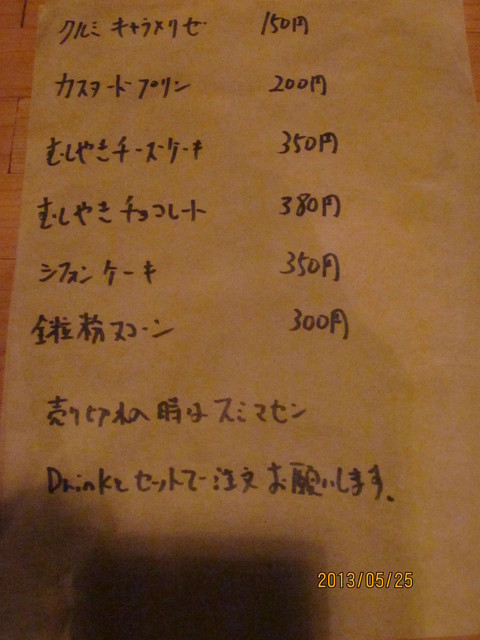 クルミ キャラメリゼ 150円
カスタードプリン 200円
むしやきチーズケーキ 350円
むしやきチョコレート 380円
シフォンケーキ 350円
全粒粉スコーン 300円
売り切れの時はスミマセン
Drinkとセットで注文お願いします。
2013/05/25